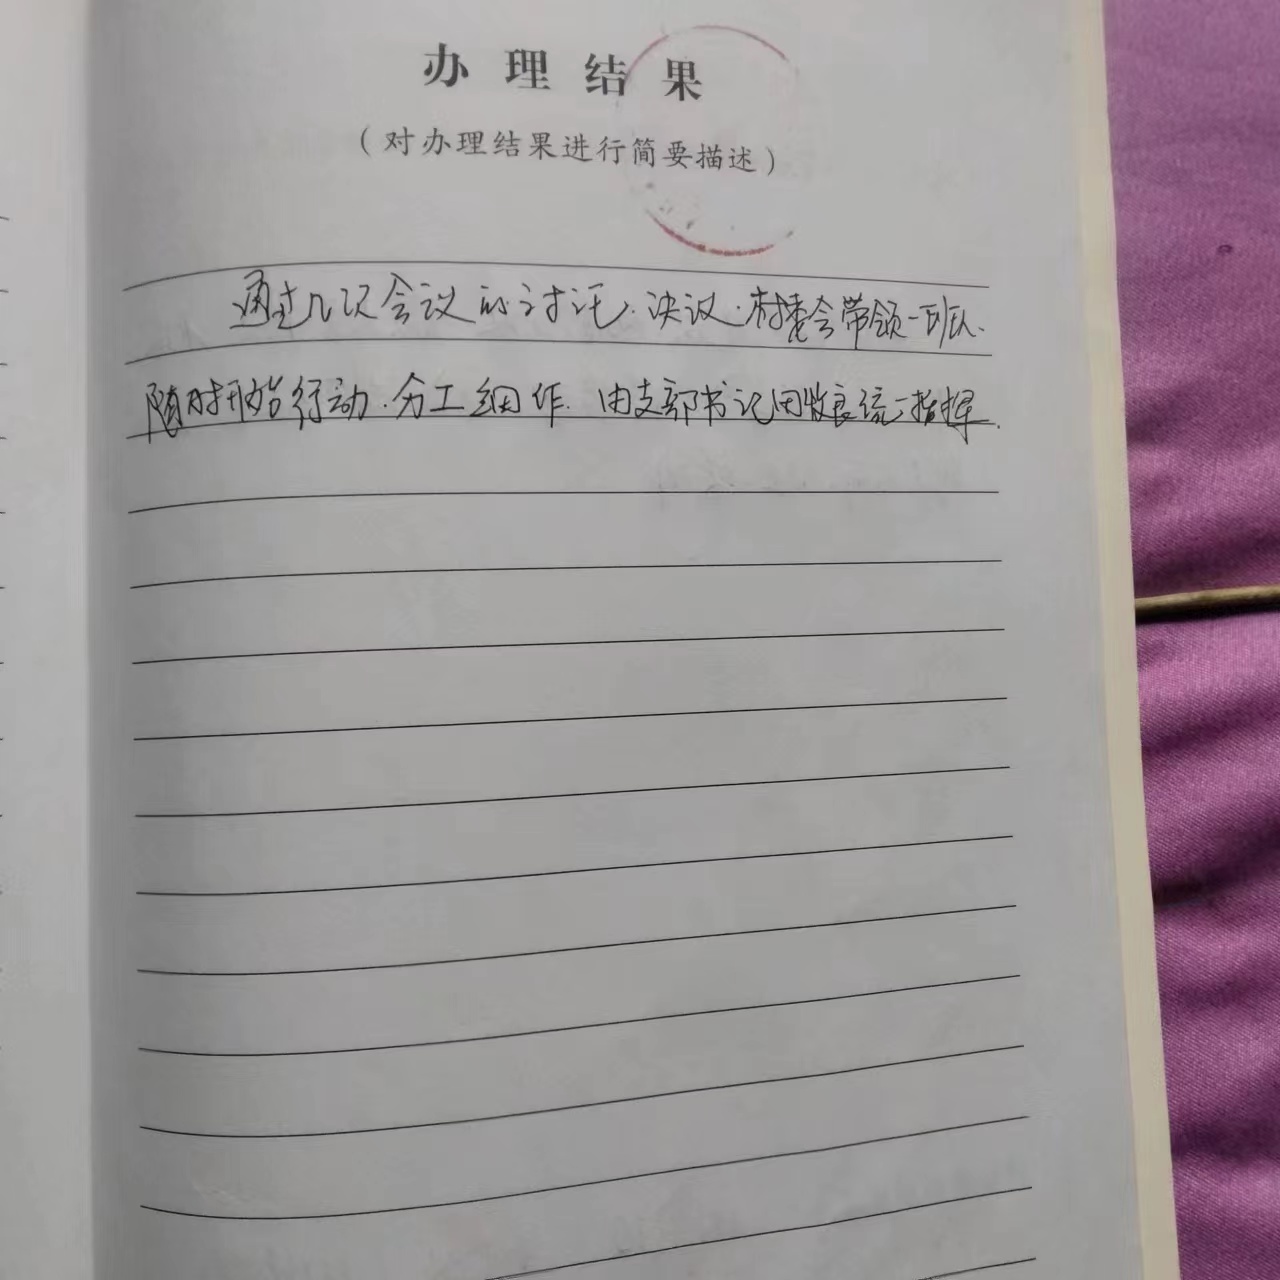 办理结果
(对办理结果进行简要描述)
通过几次会议的讨论.决议.村委会带领一班队.
随时开始行动.分工细作.由支部书记田收良统一指挥.